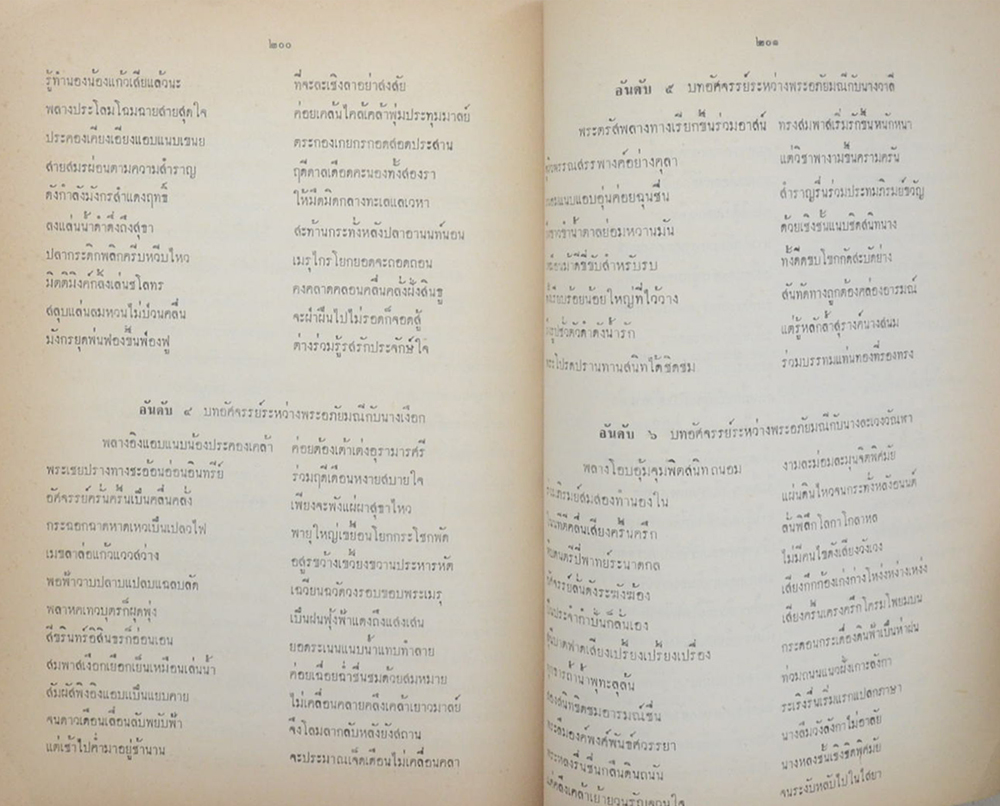 ๒๐๐
รู้ทำนองน้องแก้วเสียแล้วนะ ที่จะละเชิงลาอย่าสงสัย
พลางประโลมโฉมฉายสายสุดใจ ค่อยเคล้นไคล้เคล้าพุ่มประทุมมาลย์
ประคองเคียงเอียงแอบแนบเขนย ตระกองเกยกรกอดสอดประสาน
สายสมรผ่อนตามความสำราญ ฤดีดาลเดือดคะนองทั้งสองรา
ดังกำลังมังกรสำแดงฤทธิ์ ให้มืดมิดกลางทะเลแลเวหา
ลงแล่นน้ำดำดึ่งถึงสุธา สะท้านกระทั่งหลังปลาอานนท์นอน
ปลากระดิกพลิกครีบหวีบไหว เมรุไกรโยกยอดจะถอดถอน
มิตติมิงค์กลิ้งเล่นชโลทร คงคลาดคลอนคลื่นคลั่งฝั่งสินธู
สลุบแล่นลมหวนไม่ป่วนคลื่น จะฝ่าฝืนไปไม่รอดก็จอดสู้
มังกรยุดพ่นฟองขึ้นฟ่องฟู ต่างร่วมรู้รสรักประจักษ์ใจ
อันดับ ๔ บทอัศจรรย์ระหว่างพระอภัยมณีกับนางเงือก
พลางอิงแอบแนบน้องประคองเคล้า ค่อยต้องเต้าเต่งอุรามารศรี
พระเชยปรางทางชะอ้อนอ่อนอินทรีย์ ร่วมฤดีเดือนหงายสบายใจ
อัศจรรย์ครั่นครื้นเป็นคลื่นคลั่ง เพียงจะพังแผ่นผาสุธาไหว
กระฉอกฉาดหาดเหวเป็นเปลวไฟ พายุใหญ่เขยื้อนโยกกระโชกพัด
เมขลาล่อแก้วแววสว่าง อสูรขว้างเขวี้ยงขวานประหารหัด
พอฟ้าวาบปลาบแปลบแฉลบลัด เฉวียนฉวัดวงรอบขอบพระเมรุ
พลาหกเทวบุตรก็ผุดพุ่ง เป็นฝนฟุ้งฟ้าแดงถึงแสงเสน
สีขรินทร์อิสินธรก็อ่อนเอน ยอดระเนนแนบน้ำแทบทำลาย
สมพาสเงือกเยือกเย็นเหมือนเล่นน้ำ ค่อยเฉื่อยฉ่ำชื่นชมด้วยสมหมาย
สัมผัสพิงอิงแอบแป็นแยบคาย ไม่เคลื่อนคลายคลึงเคล้าเยาวมาลย์
จนดาวเดือนเลื่อนลับพยับฟ้า จึงโลมลากลับหลังยังสถาน
แต่เช้าไปค่ำมาอยู่ช้านาน จะประมาณเจ็ดเดือนไม่เคลื่อนคลา
๒๐๑
อันดับ ๕ บทอัศจรรย์ระหว่างพระอภัยมณีกับนางวาลี
พระตรัสพลางทางเรียกขึ้นร่วมอาสน์ ทรงสมพาสเริ่มรักขึ้นหนักหนา
พรรณสรรพางค์อย่างคุลา แต่วิชาพางามขึ้นครามครัน
แนบแอบอุ่นค่อยฉุนชื่น สำราญรื่นร่วมประทมภิรมย์ขวัญ
ช้ำน้ำตาลย่อมหวานมัน ด้วยเชิงชั้นแนบชิดสนิทนาง
ม้าดีขี่ขับสำหรับรบ ทั้งดีดขบโขกกัดสะบัดย่าง
ร้อยน้อยใหญ่ที่ไว้วาง สันทัดทางถูกต้องคล่องอารมณ์
รูปชั่วตัวดำดังน้ำรัก แต่รู้หลักล้ำสุรางค์นางสนม
โปรดปรานทานสนิทได้ชิดชม ร่วมบรรทมแท่นทองที่รองทรง
อันดับ ๖ บทอัศจรรย์ระหว่างพระอภัยมณีกับนางละเวงวัณฬา
พลางโอบอุ้มจุมพิตสนิทถนอม งามละม่อมละมุนจิตพิศมัย
ภิรมย์สมสองทำนองใน แผ่นดินไหวจนกระทั่งหลังอนนต์
คลื่นเสียงครื้นครึก ลั่นพิลึกโลกาโกลาหล
ดนตรีปี่พาทย์ระนาดกล ไม่มีคนไขดังเสียงวังเวง
ลั่นดังระฆังฆ้อง เสียงกึกก้องเก่งก่างโหง่งหง่างเหง่ง
ประจำกำปั่นก็ลั่นเอง เสียงครื้นเครงครึกโครมโพยมบน
ฟาดเสียงเปรี้ยงเปรี้ยงเปรื่อง กระดอนกระเดื่องดินฟ้าเป็นห่าฝน
ล้ำน้ำพุทะลุล้น ท่วมถนนแนวฝั่งเกาะลังกา
สนิทชิดชมอารมณ์ชื่น ระเริงรื่นเริ่มแรกแปลกภาษา
องค์พงศ์พันธุ์ศวรรยา นางลืมวังลังกาไม่อาลัย
หลงรื่นชื่นกลิ่นดินถนัน นางหลงชั้นเชิงชิดพิศมัย
คลึงเคล้าเย้ายวน จนระงับหลับไปในไสยา